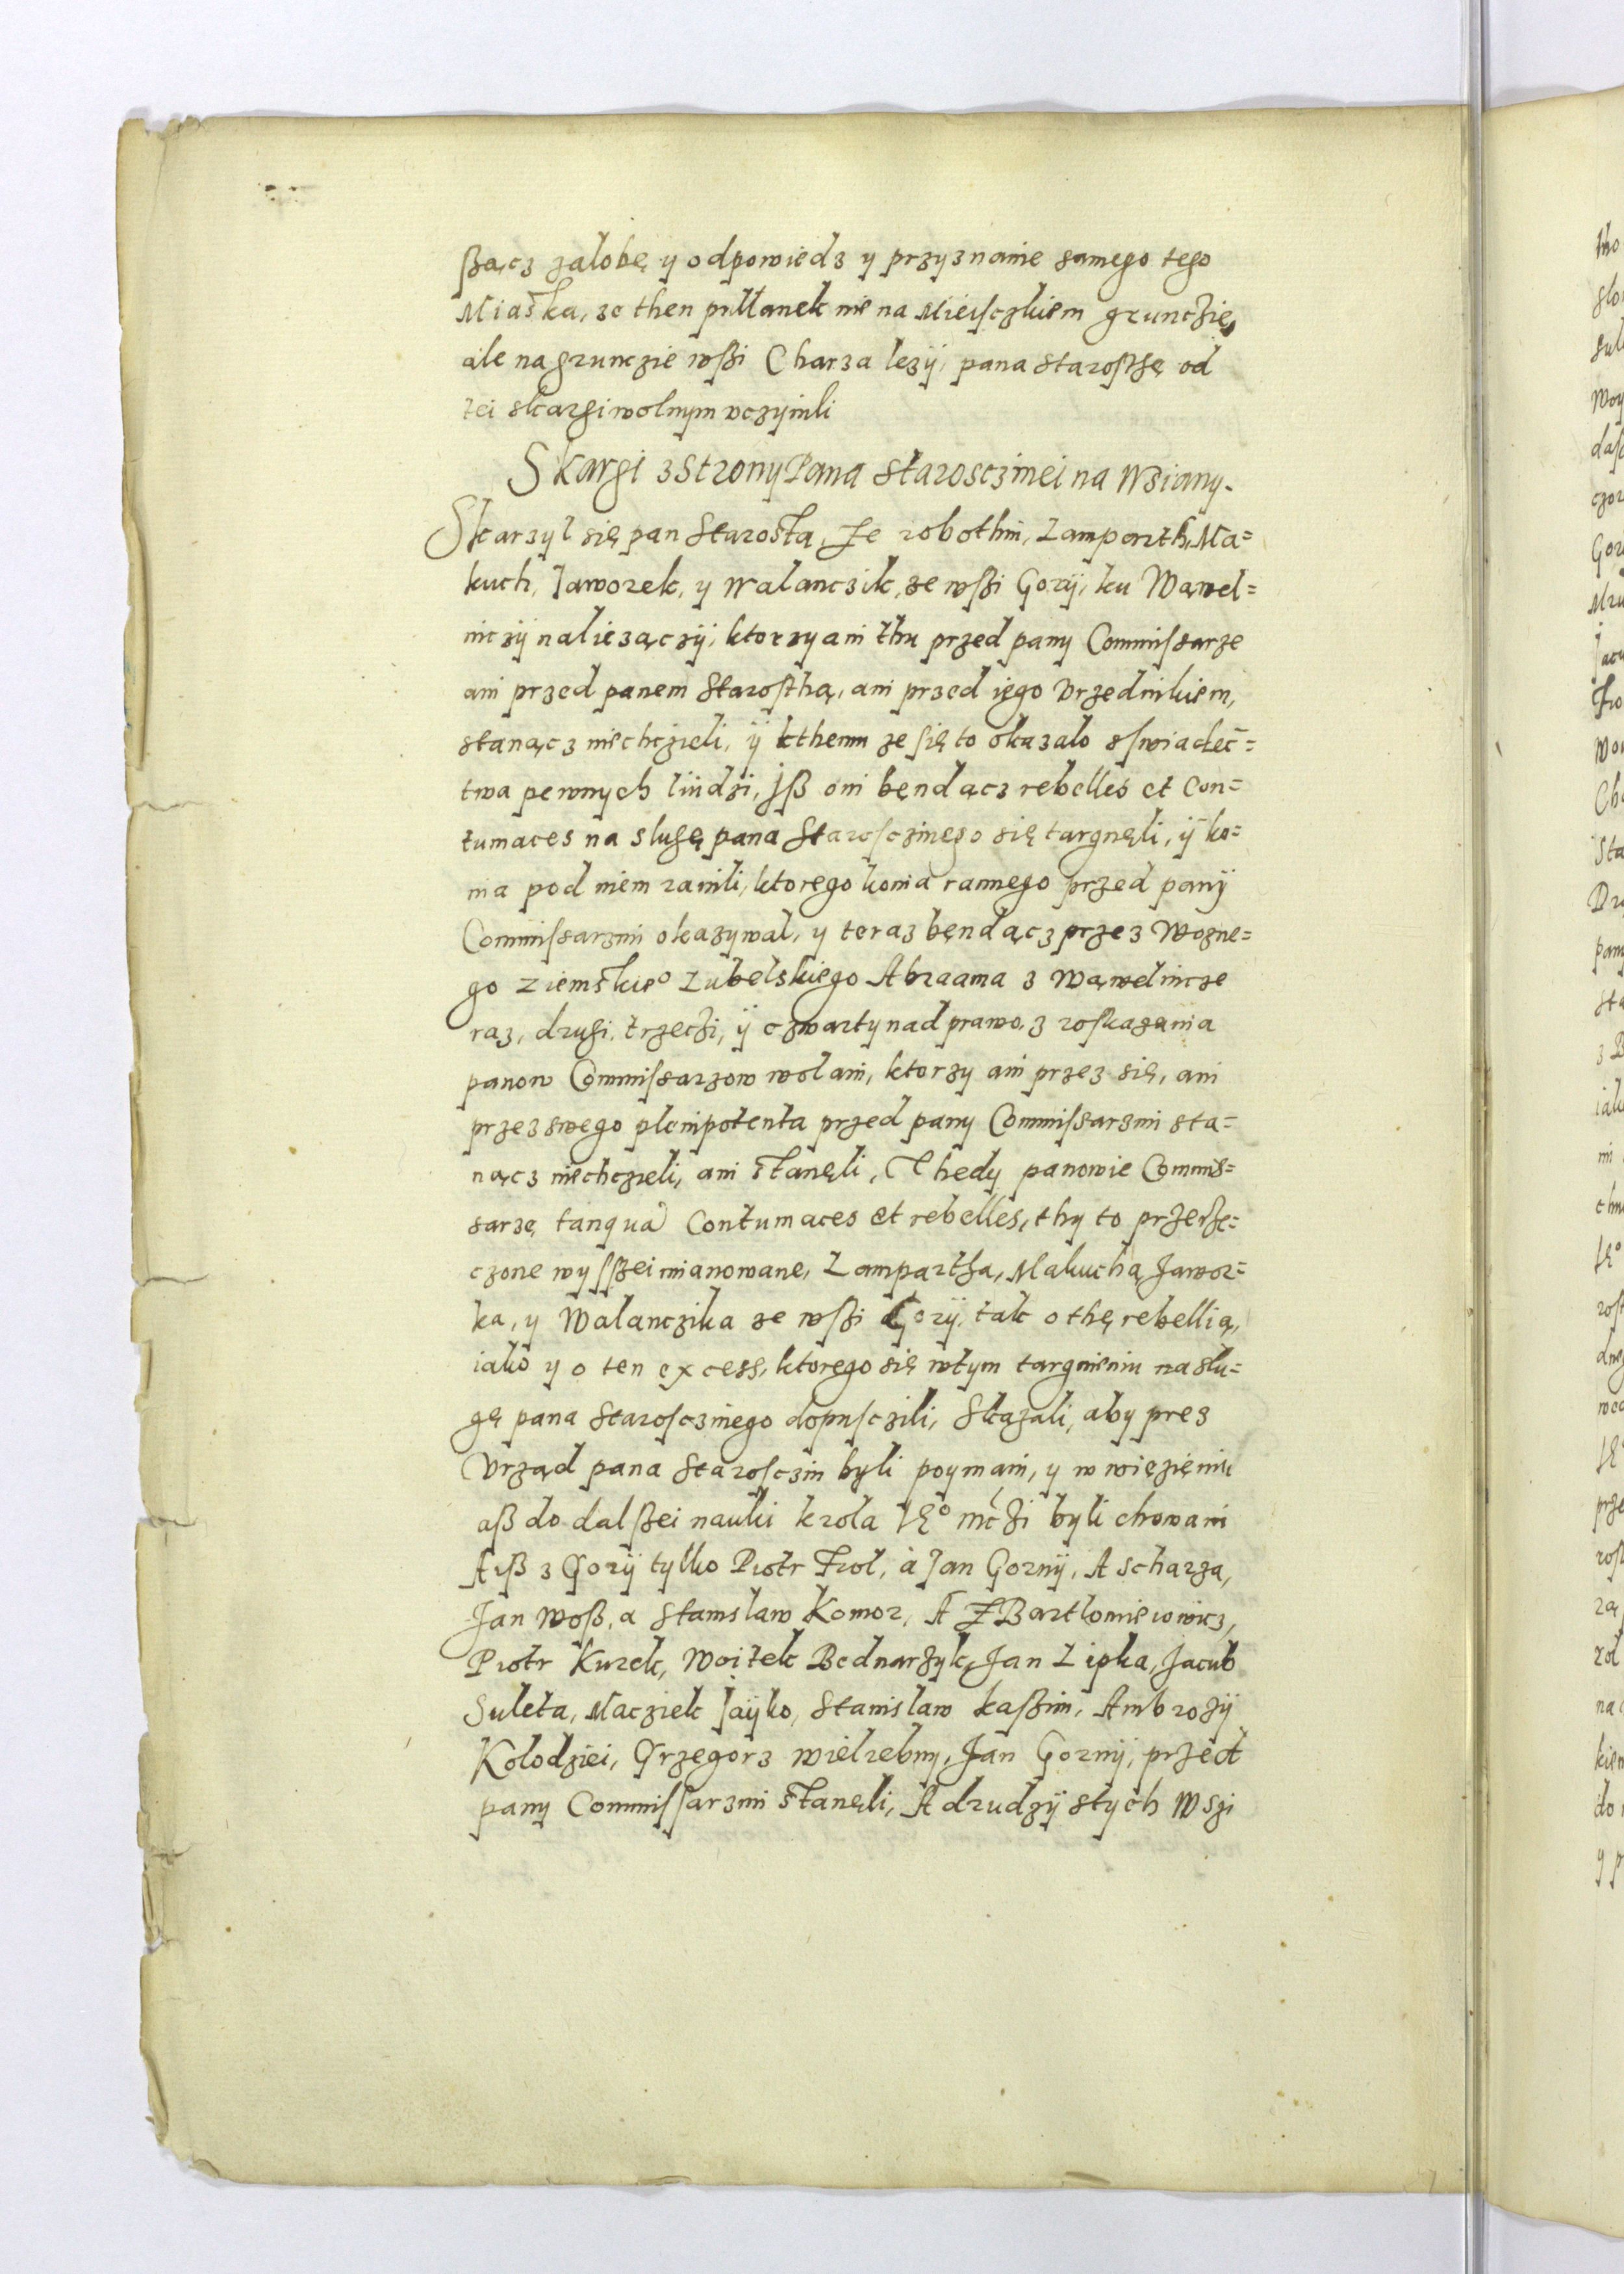 ßącz zalobę y odpowiedz y przyznanie samego tego
Miasta, ze then pultanek nie na Mieisczkiem grunczie,
ale na grunczie wßi Charza lezÿ, pana starostę od
tei skargi wolnym vczynili
Skargi z strony Pana starosczinei na Wsiany.
Skarzyl się pan Starosta, Ze robothni, Lamparth, Ma=
kuch, Jaworek, y Walanczik, ze wßi Gorÿ, ku Wąwel=
niczÿ naliezączÿ, ktorzy ani thu przed pany Commissarze
ani przed panem Starosthą, ani przed iego Vrzednikiem,
stanącz niechczieli, ÿ kthemu ze się to okazalo sswiadec=
twa pewnych liudzi, Jß oni będącz rebelles et Con=
tumaces na slugę pana Starosczinego się targnęli, ÿ ko=
nia pod niem ranili, ktorego konia rannego przed panÿ
Commissarzmi okazywal, y teraz bęndącz przez Wozne=
go ziemskie° Lubelskiego Abraama z Wąwelnicze
raz, drugi, trzeczi, ÿ czwarty nad prawo, z roskazania
panow Commissarzow wolani, ktorzy ani przez się, ani
przez swego plenipotenta przed pany Commissarzmi sta=
nącz niechczieli, ani stanęli, Thedy panowie Commis=
sarze tanquã Contumaces et rebelles, thy to przerze=
czone wysszei mianowane, Lampartha, Makucha, Jawor=
ka, y Walanczika ze wßi Gorÿ, tak o thę rebellią,
iako y o ten excess, ktorego się wtym targnieniu na slu=
gę pana Starosczinego dopusczili, Skazali, aby prez
Vrząd pana Starosczin byli poymani, y w więzieniu
aß do dalßei nauki krola Je° mczi byli chowani
Aiß z Gorÿ tylko Piotr Frol, à Jan Gornÿ, A scharza,
Jan Woß, a Stanislaw Komor, A Z Bartlomiewowicz,
Piotr Kurek, Woitek Bednarzyk, Jan Lipka, Jacub
Suleta, Macziek Jaÿko, Stanislaw kaßin, Ambrozÿ
Kolodziei, Grzegorz wielebny, Jan Gornÿ, przed
pany Commissarzmi stanęli, A drudzÿ stych Wszi